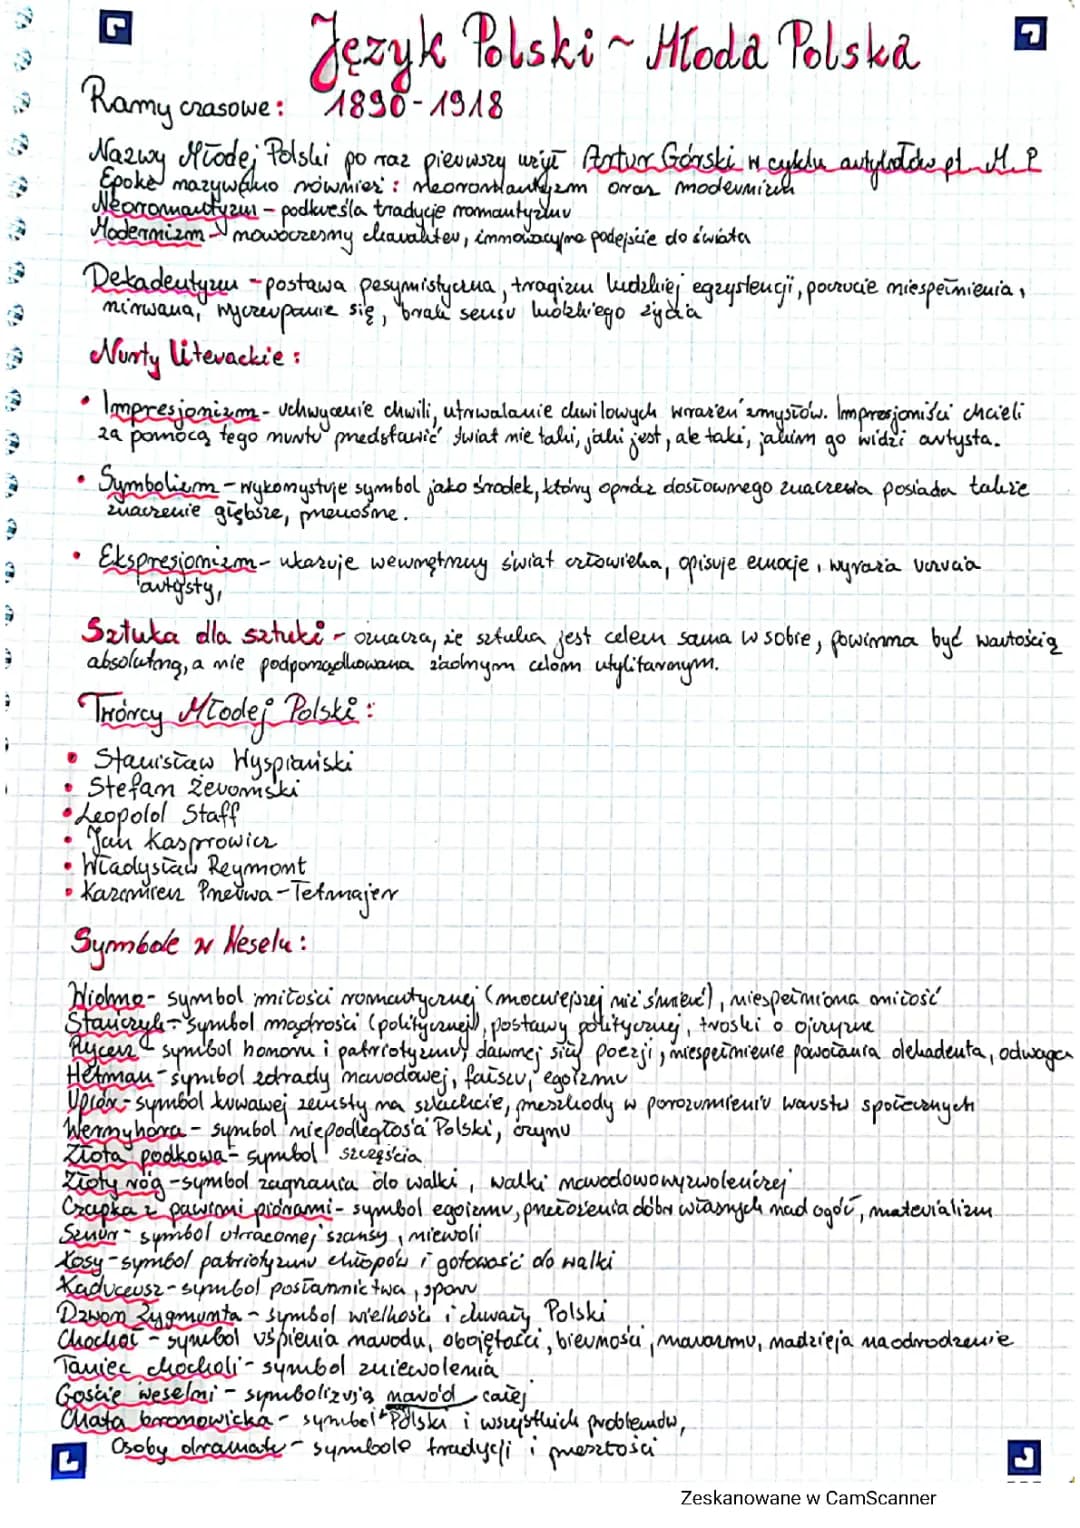 Język Polski ~ Młoda Polska
Ramy czasowe: 1890-1918
Nazwy Młodej Polski po raz pierwszy użył Artur Górski w cyklu artykułów pt. M. P
Epokę nazywano również: neoromantyzm oraz modernizm
Neoromantyzm - podkreśla tradycje romantyzmu
Modernizm - nowoczesny charakter, innowacyjne podejście do świata
Dekadentyzm - postawa pesymistyczna, tragizm ludzkiej egzystencji, poczucie niespełnienia,
nirwana, wyczerpanie się, brak sensu ludzkiego życia
Nurty literackie:
• Impresjonizm - uchwycenie chwili, utrwalanie chwilowych wrażeń zmysłów. Impresjoniści chcieli
za pomocą tego nurtu przedstawić świat nie taki, jaki jest, ale taki, jakim go widzi artysta.
• Symbolizm - wykorzystuje symbol jako środek, który oprócz dosłownego znaczenia posiada także
znaczenie głębsze, przenośne.
• Ekspresjonizm - ukazuje wewnętrzny świat człowieka, opisuje emocje, wyraża uczucia
artysty,
Sztuka dla sztuki - oznacza, że sztuka jest celem sama w sobie, powinna być wartością
absolutną, a nie podporządkowana żadnym celom utylitarnym.
Twórcy Młodej Polski:
• Stanisław Wyspiański
• Stefan Żeromski
• Leopold Staff
• Jan Kasprowicz
• Władysław Reymont
• Kazimierz Przerwa-Tetmajer
Symbole w Weselu:
Widmo - symbol miłości romantycznej (mocniejszej niż śmierć), niespełniona miłość
Stańczyk - symbol mądrości (politycznej), postawy politycznej, troski o ojczyznę
Rycerz - symbol honoru i patriotyzmu, dawnej siły poezji, niespełnienie powołania dekadenta, odwaga
Hetman - symbol zdrady narodowej, fałszu, egoizmu
Upiór - symbol krwawej zemsty na szlachcie, przeszkody w porozumieniu warstw społecznych
Wernyhora - symbol niepodległości Polski, czynu
Złota podkowa - symbol szczęścia
Złoty róg - symbol zagrzania do walki, walki narodowowyzwoleńczej
Czapka z pawimi piórami - symbol egoizmu, przełożenia dóbr własnych nad ogół, materializm
Sznur - symbol utraconej szansy, niewoli
Kosy - symbol patriotyzmu chłopów i gotowość do walki
Kaduceusz - symbol posłannictwa, sporu
Dzwon Zygmunta - symbol wielkości i chwały Polski
Chochoł - symbol uśpienia narodu, obojętości, bierności, marazmu, nadzieja na odrodzenie
Taniec chocholi - symbol zniewolenia
Goście weselni - symbolizują naród całej
Chata bronowicka - symbol Polski i wszystkich problemów,
Osoby dramatu - symbole tradycji i przeszłości
Zeskanowane w CamScanner